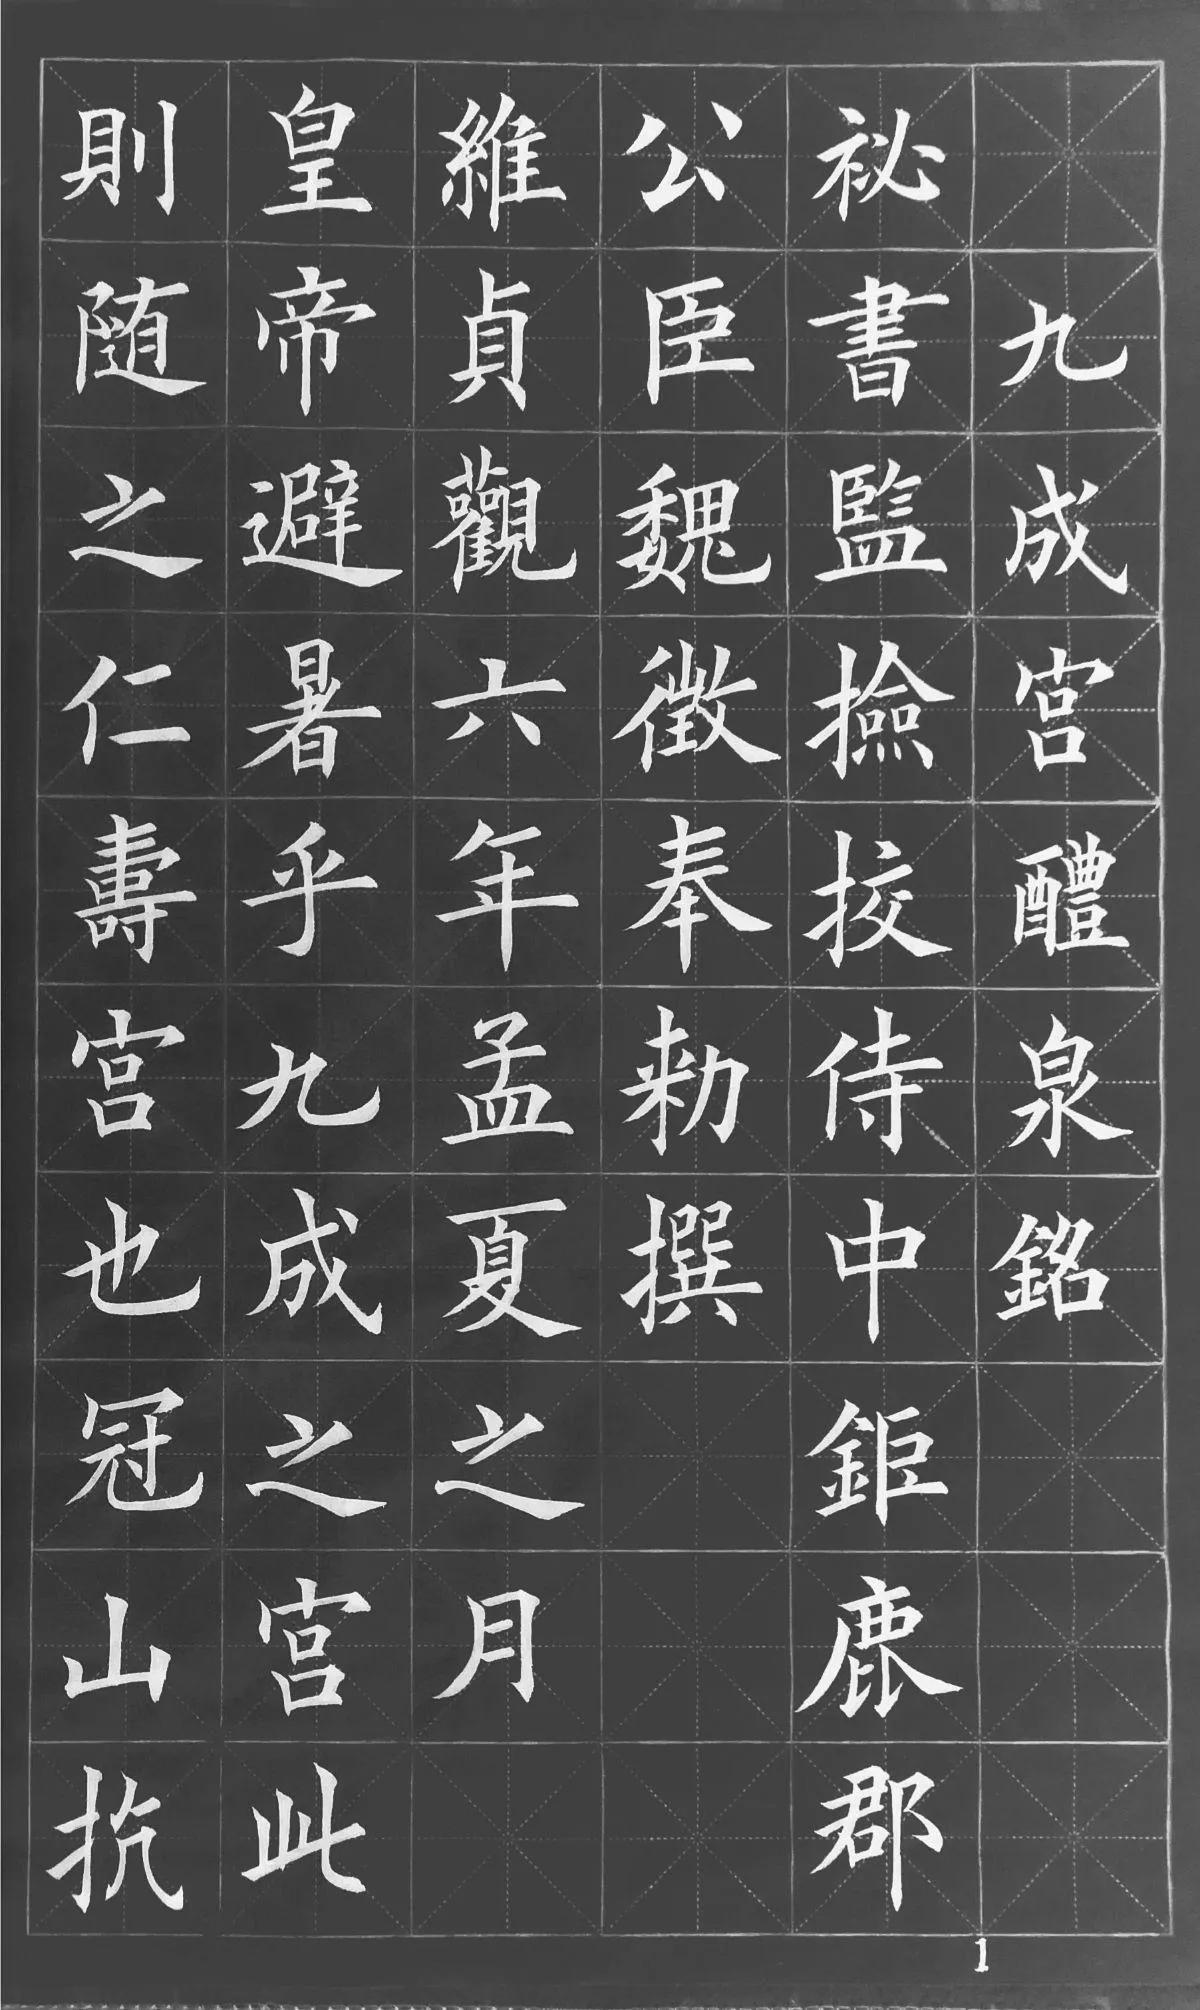 九成宮醴泉銘
祕書監撿挍侍中鉅鹿郡
公臣魏徵奉勑撰
維貞觀六年孟夏之月
皇帝避暑乎九成之宮此
則随之仁壽宮也冠山抗
1